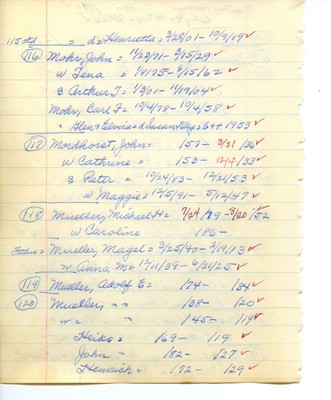 115 ctd " = d = Henrietta = 3/28/01 - 10/9/19 ✓
116 Mohr, John = 11/23/91 - 3/15/29 ✓
w Tena = 1/4/95 - 8/15/62 ✓
s Arthur J = 1/3/01 - 1/19/04 ✓
Mohr, Carl F = 10/4/98 - 10/4/58 ✓
" Glen & Edwin = d Susan Kay = 1953 ✓
117 Mordhorst, John = 157 - 3/31/36 ✓
w Cathrine = 153 - 12/4/33 ✓
s Peter = 10/24/83 - 12/21/53 ✓
w Maggie = 12/5/91 - 5/12/47 ✓
118 Mueller, Michael H = 7/24/79 - 9/20/52
w Caroline 186 -
Father = Mueller, Magel = 3/25/40 - 3/19/13 ✓
w Anna M = 12/11/39 - 6/24/25 ✓
119 Mueller, Adolf E = 174 - 134 ✓
120 Mueller, " " 138 - 120 ✓
w = " 145 - 119 ✓
Heiko = 169 - 119 ✓
John " 182 - 127 ✓
Heinrich = 172 - 129 ✓